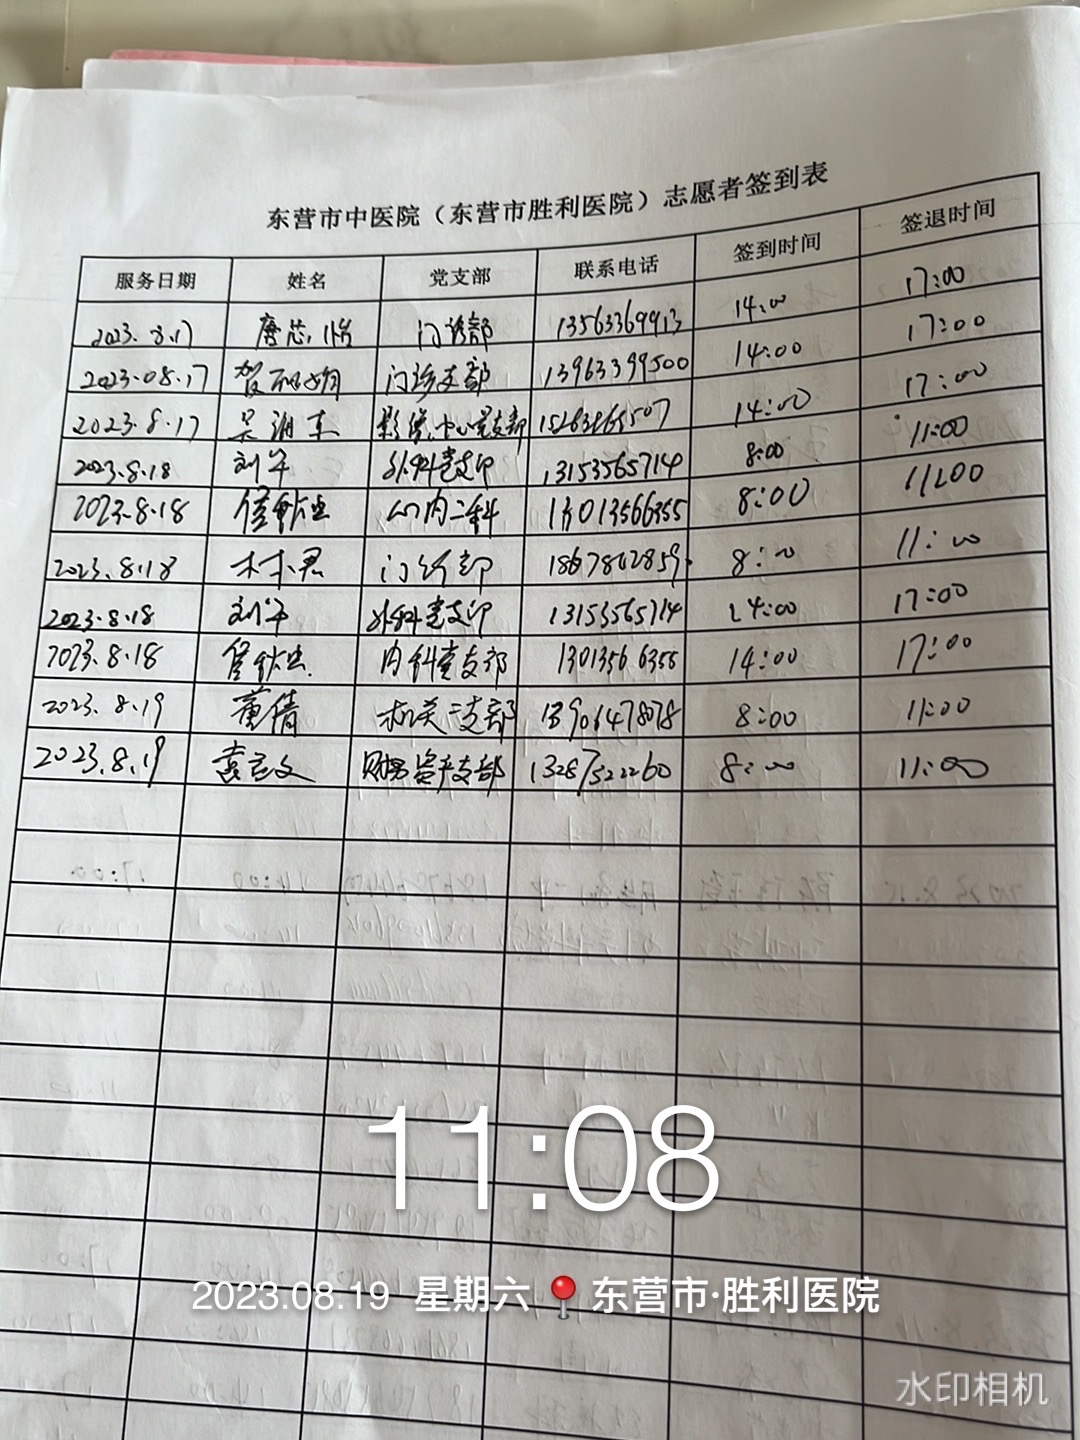 东营市中医院（东营市胜利医院）志愿者签到表
服务日期 姓名 党支部 联系电话 签到时间 签退时间
2023.8.17 唐芯怡 门诊部 13563369913 14:00 17:00
2023.08.17 贺 门诊支部 13963399500 14:00 17:00
2023.8.17 吴湘东 影像中心党支部 14:00 17:00
2023.8.18 刘军 外科党支部 13153565714 8:00 11:00
2023.8.18 内二科 13013566355 8:00 11:00
2023.8.18 林君 门诊部 1867862859 8:00 11:00
2023.8.18 刘军 外科党支部 13153565714 14:00 17:00
2023.8.18 内科党支部 13013566355 14:00 17:00
2023.8.19 董倩 机关二支部 13906478078 8:00 11:00
2023.8.19 袁文 财务资产支部 13287522260 8:00 11:00
11:08
2023.08.19 星期六 东营市·胜利医院
水印相机